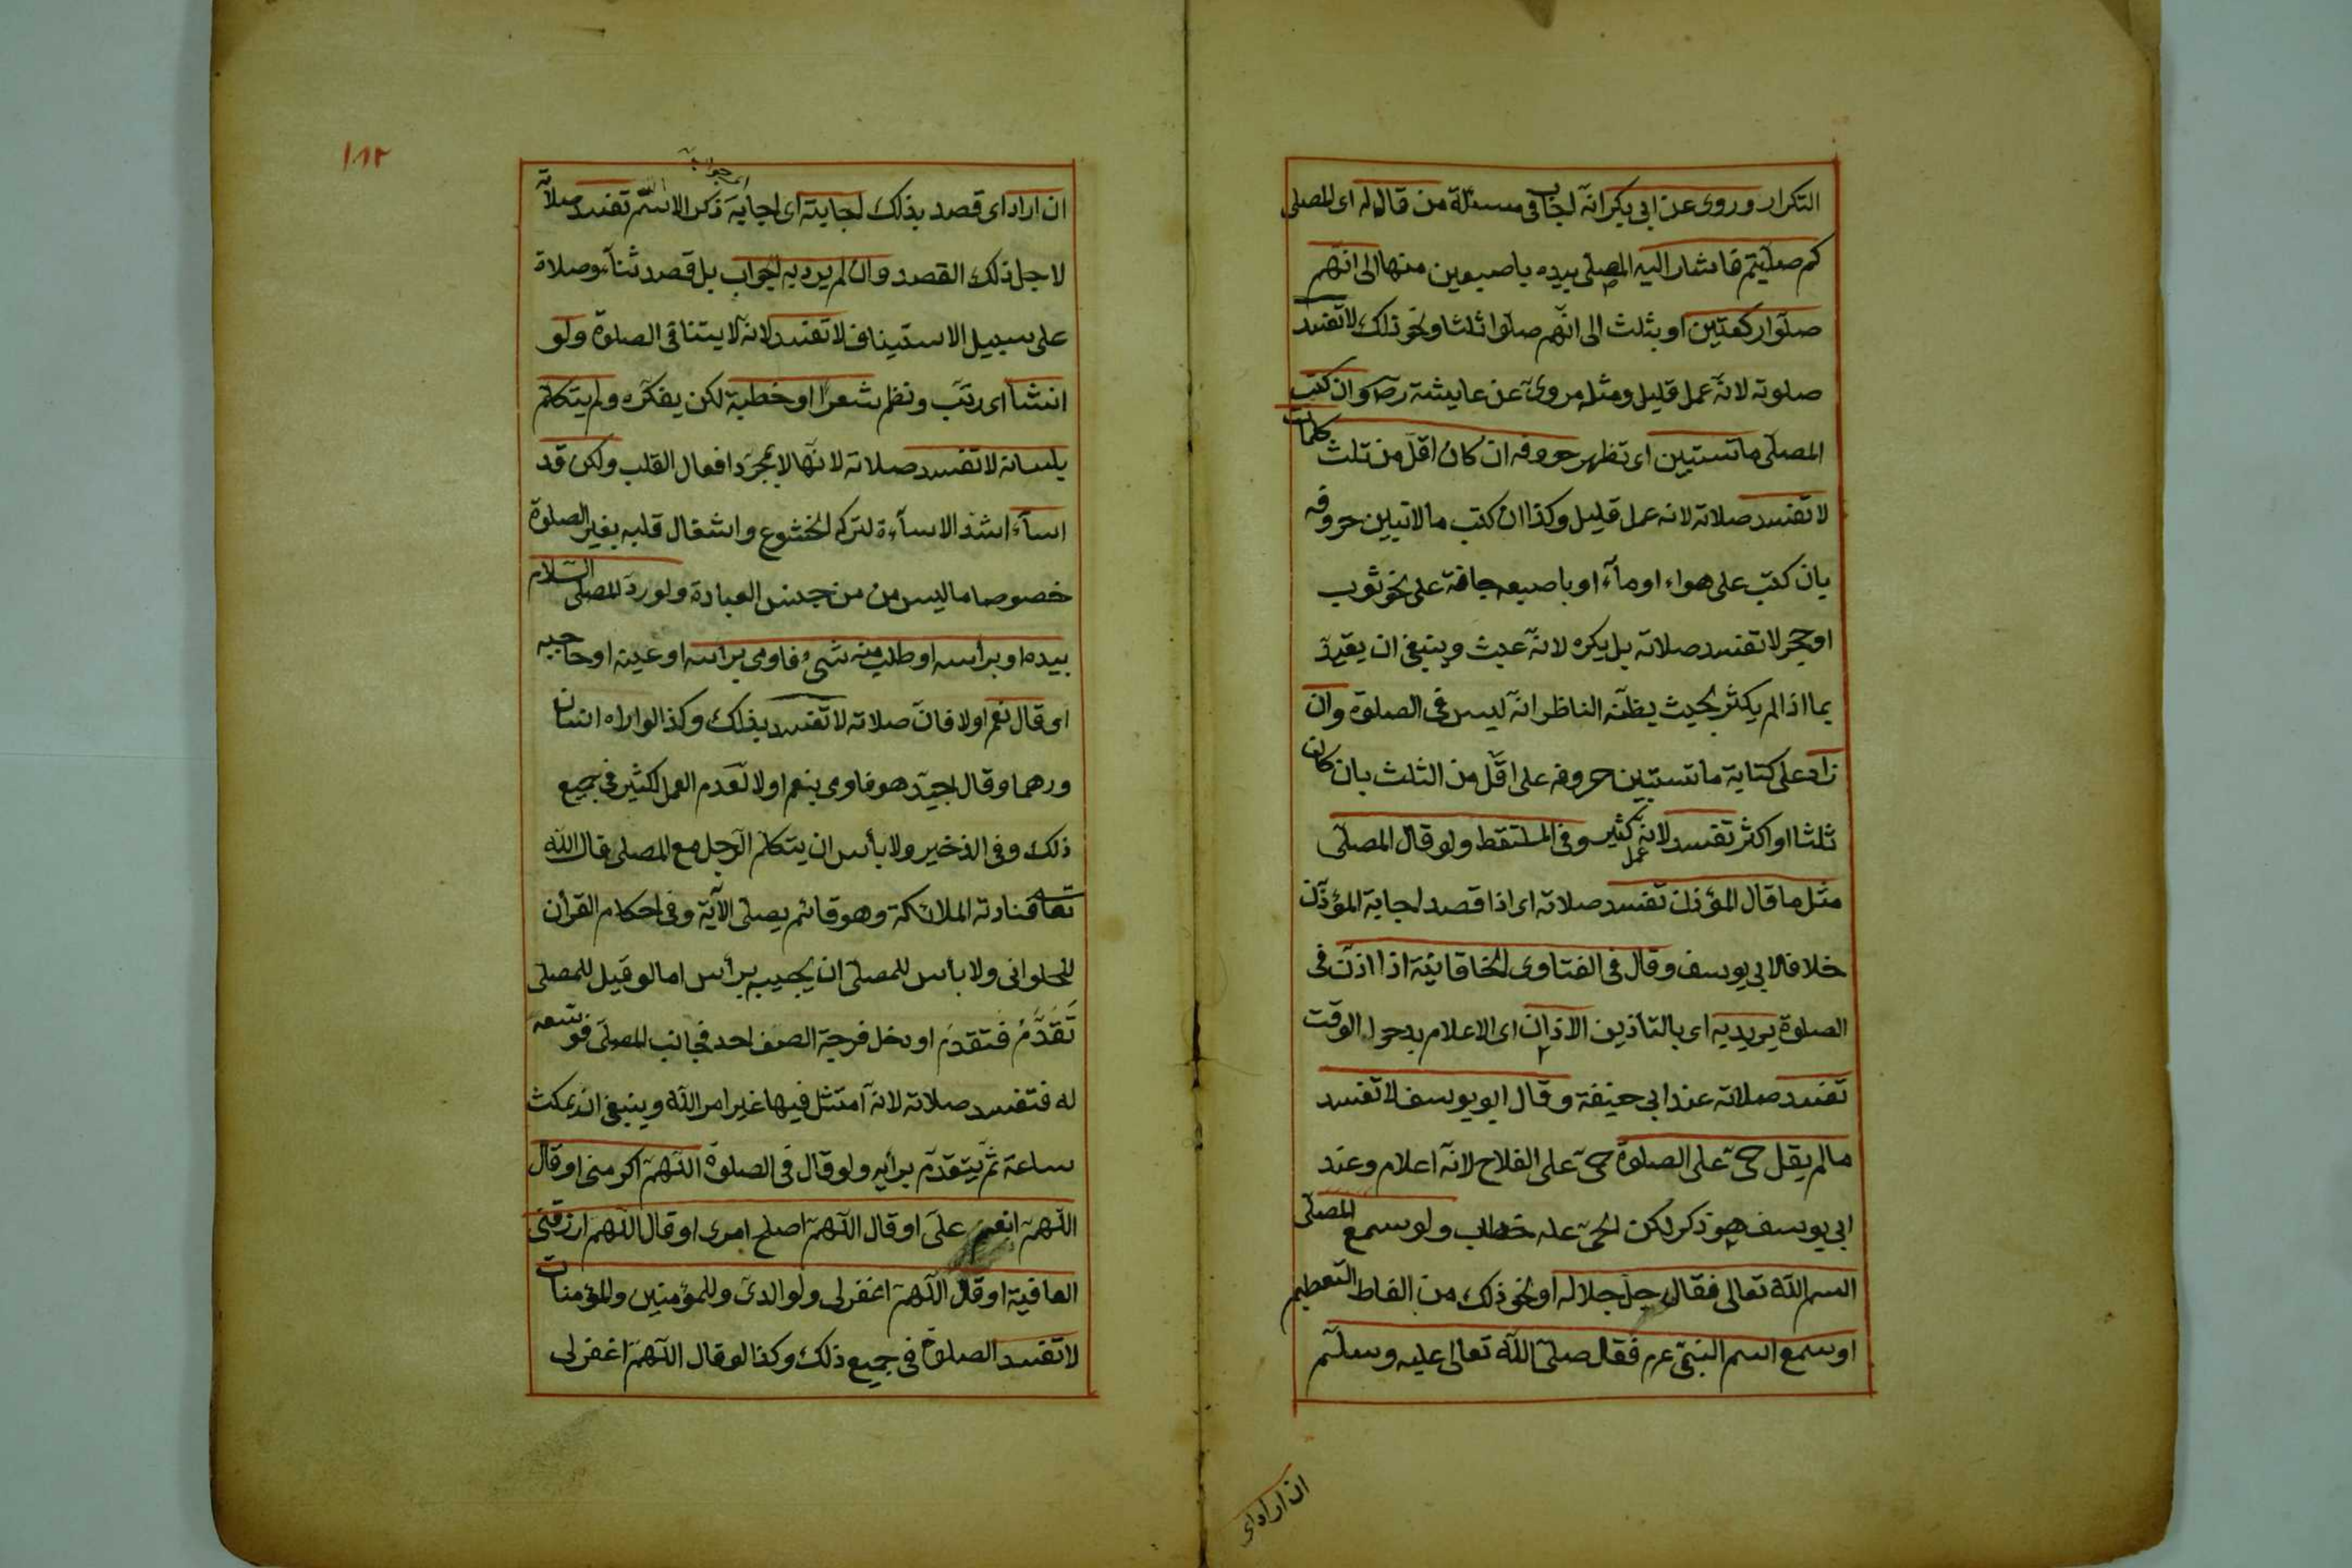 التكرار وروى عن ابى بكر انه اجاب فى مسئلة من قال له اى للمصلى
كم صليتم فاشار اليه المصلى بيده باصبعين منها الى انهم
صلوا ركعتين او بثلث الى انهم صلوا ثلثا ونحو ذلك لا تفسد
صلوته لانه عمل قليل ومثله مروى عن عايشة رض وان كتب
المصلى ما تستبين اى تظهر حروفه ان كان اقل من ثلث كلمات
لا تفسد صلاته لانه عمل قليل وكذا ان كتب ما لا تبين حروفه
بان كتب على هواء او مآء او باصبعه جافة على نحو ثوب
او حجر لا تفسد صلاته بل يكره لانه عبث وينبغى ان يقيد
بما اذا لم يكثر بحيث يظنه الناظر انه ليس فى الصلوة وان
زاد على كتابة ما تستبين حروفه على اقل من الثلث بان كان
ثلثا او اكثر تفسد لانه عمل كثير وفى الملتقط ولو قال المصلى
مثل ما قال المؤذن تفسد صلاته اى اذا قصد اجابة المؤذن
خلافا لابى يوسف وقال فى الفتاوى الخاقانية اذا اذن فى
الصلوة يريد به اى بالتاذين الاذان اى الاعلام بدخول الوقت
تفسد صلاته عند ابى حنيفة وقال ابو يوسف لا تفسد
ما لم يقل حى على الصلوة حى على الفلاح لانه اعلام وعند
ابى يوسف هو ذكر لكن الحيعله خطاب ولو سمع المصلى
اسم الله تعالى فقال جل جلاله او نحو ذلك من الفاظ التعظيم
او سمع اسم النبى عرم فقال صلى الله تعالى عليه وسلم
ان اراد اى
١٨٢
ان اراد اى قصد بذلك اجابته اى اجابة ذكر الاسم تفسد صلاته
لاجل ذلك القصد وان لم يرد به الجواب بل قصد ثنآء وصلاة
على سبيل الاستيناف لا تفسد لانه لا يتنافى الصلوة ولو
انشا اى رتب ونظم شعرا او خطبة لكن بفكره ولم يتكلم
بلسانه لا تفسد صلاته لانها لا بمجرد افعال القلب ولكن قد
اسآء اشد الاسآءة لتركه الخشوع واشغال قلبه بغير الصلوة
خصوصا ما ليس من من جنس العبادة ولو رد المصلى السلام
بيده او برأسه او طلب منه شئ فاومى برأسه او عينه او حاجبه
اى قال نعم او لا فان صلاته لا تفسد بذلك وكذا لو اراه انسان
درهما وقال اجيد هو فاومى بنعم او لا لعدم العمل الكثير فى جميع
ذلك وفى الذخير ولا بأس ان يتكلم الرجل مع المصلى قال الله
تعالى فنادته الملائكة وهو قائم يصلى الآية وفى احكام القرأن
للحلوانى ولا بأس للمصلى ان يجيبه برأس اما لو قيل للمصلى
تقدم فتقدم او دخل فرجة الصف احد فجانب المصلى فوسعه
له فتفسد صلاته لانه امتثل فيها غير امر الله وينبغى ان يمكث
ساعة ثم يتقدم برأيه ولو قال فى الصلوة اللهم اكرمنى او قال
اللهم انعم على او قال اللهم اصلح امرى او قال اللهم ارزقنى
العافية او قال اللهم اغفر لى ولوالدى وللمؤمنين وللمؤمنات
لا تفسد الصلوة فى جميع ذلك وكذا لو قال اللهم اغفر لى